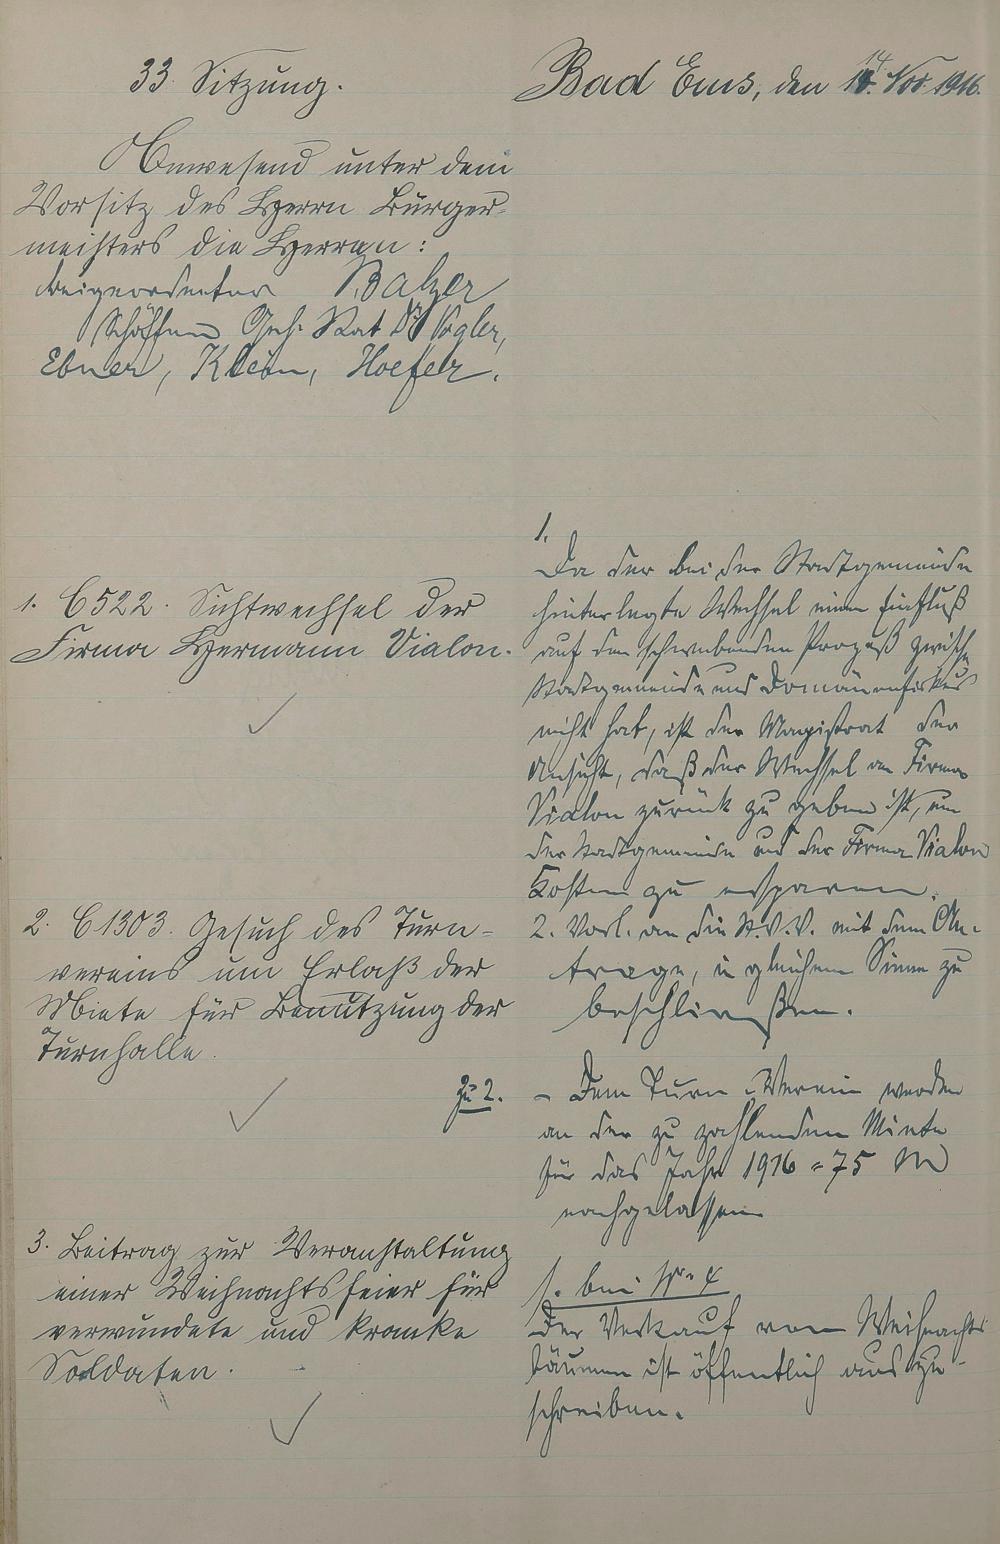 33. Sitzung.
Bad Ems, den 14. Nov. 1916.
Anwesend unter dem
Vorsitz des Herrn Bürger-
meisters die Herren:
Beigeordneter Balzer
Schöffen Geh. Rat Dr Vogler,
Ebner, Klein, Hoefer.
1. C 522. Sichtwechsel der
Firma Hermann Vialon.
2. C 1303. Gesuch des Turn-
vereins um Erlaß der
Miete für Benutzung der
Turnhalle.
3. Beitrag zur Veranstaltung
einer Weihnachtsfeier für
verwundete und kranke
Soldaten.
1.
Da der bei der Stadtgemeinde
hinterlegte Wechsel einen Einfluß
auf den schwebenden Prozeß zwischen
Stadtgemeinde und Domänenfiskus
nicht hat, ist der Magistrat der
Ansicht, daß der Wechsel an Firma
Vialon zurück zu geben ist, um
der Stadtgemeinde und der Firma Vialon
Kosten zu ersparen.
2. Vorl. an die St.V.V. mit dem An-
trage, in gleichem Sinne zu
beschließen.
Zu 2. – Dem Turn-Verein werden
an der zu zahlenden Miete
für das Jahr 1916 = 75 M
nachgelassen
1. bei Nr. 4
Der Verkauf von Weihnachts
bäumen ist öffentlich auszu-
schreiben.